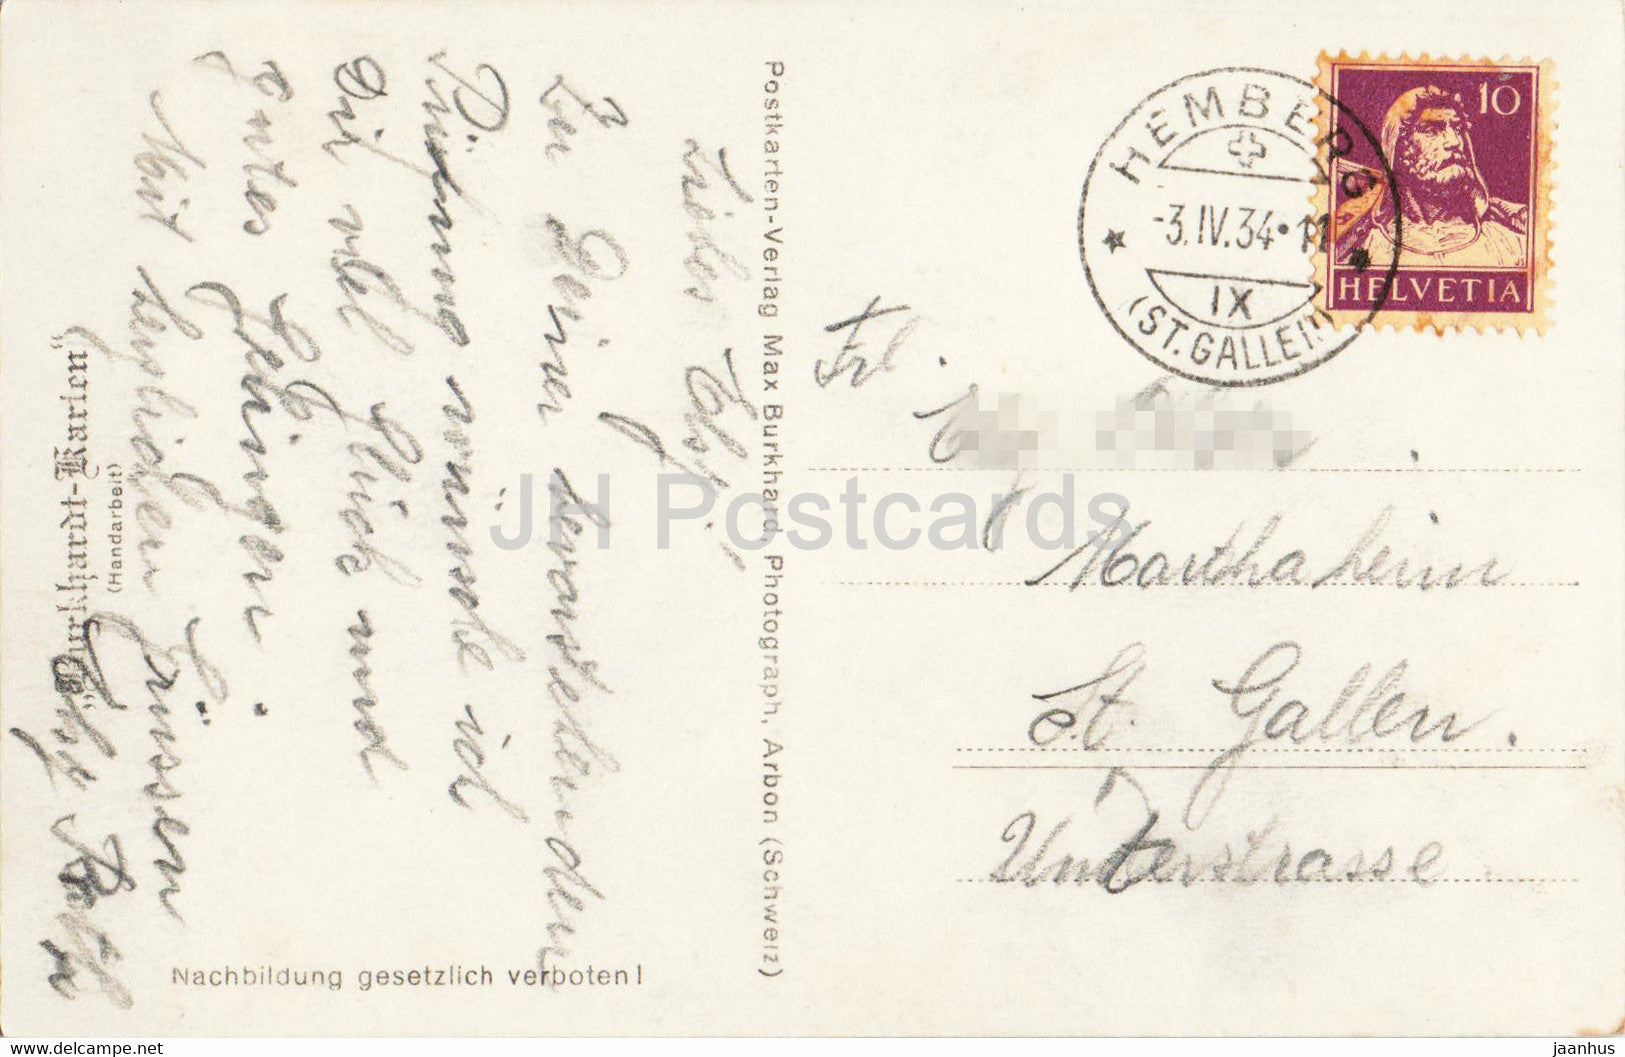 Liebes Elsy!
Zu Deiner bevorstehenden
Prüfung wünsche ich
Dir viel Glück und
gutes Gelingen.
Mit herzlichen Grüssen
Postkarten-Verlag Max Burkhard, Photograph, Arbon (Schweiz)
"Burkhardt-Karten"
(Handarbeit)
Nachbildung gesetzlich verboten!
HEMBERG
-3.IV.34•11
IX
(ST. GALLEN)
10
HELVETIA
Frl.
Marthaheim
St. Gallen.
Unterstrasse
7
JH Postcards
https://www.jh-postcards.com
jaanhus